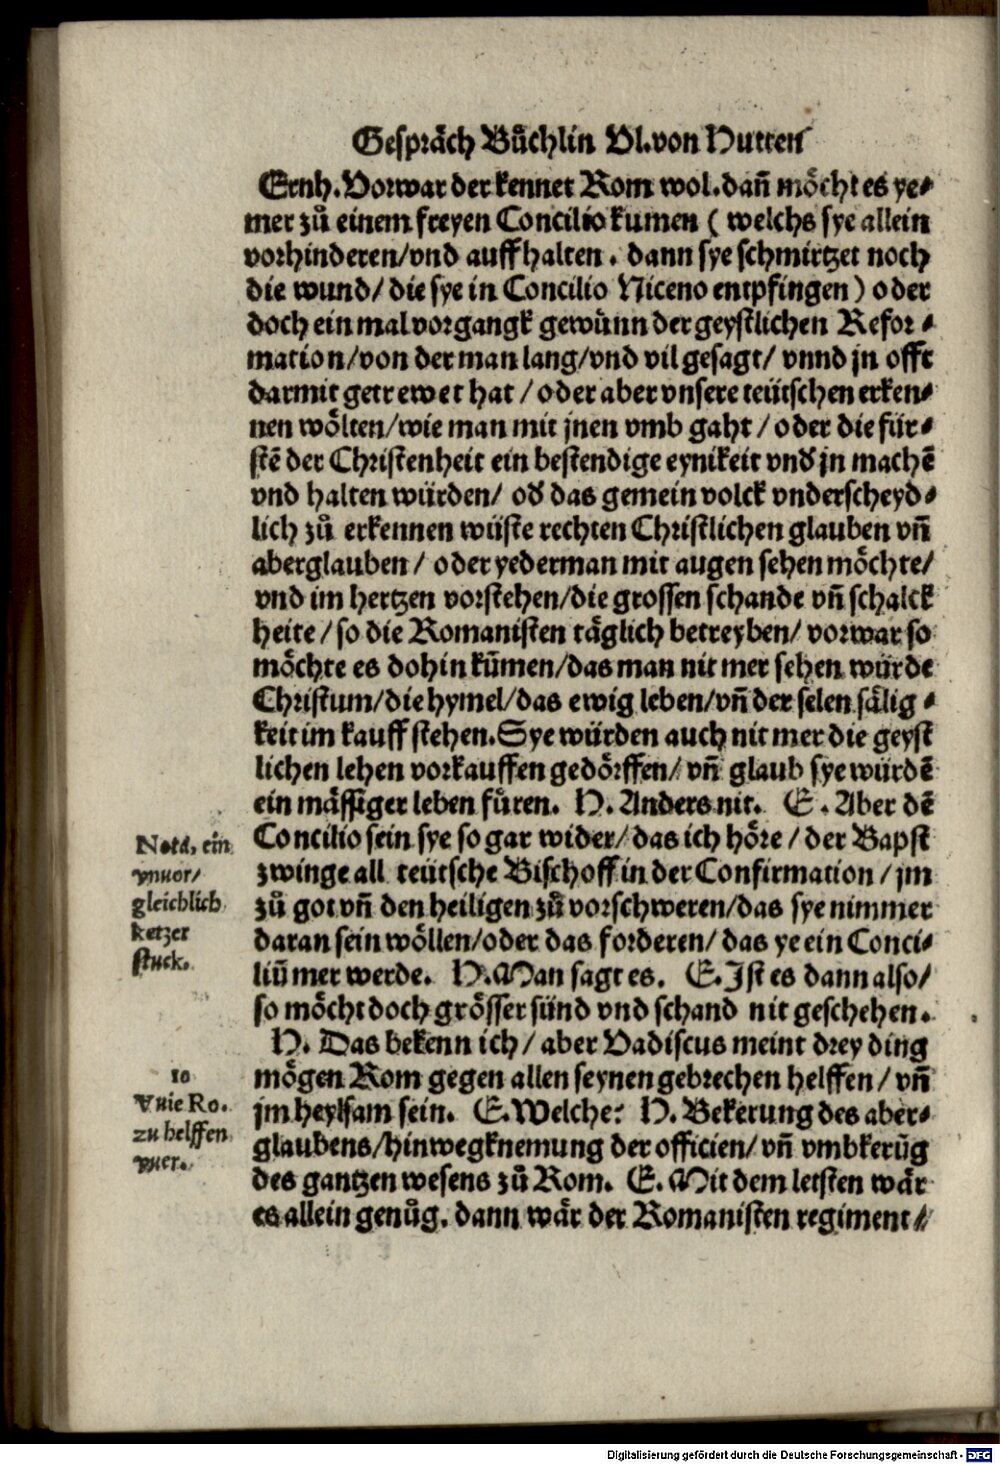 Gespräch Bůchlin Vl.von Hutten
Ernh. Vorwar der kennet Rom wol. dañ möcht es ye-
mer zů einem freyen Concilio kumen ( welchs sye allein
vorhinderen/vnd auffhalten. dann sye schmirtzet noch
die wund/ die sye in Concilio Niceno entpfingen) oder
doch ein mal vorgangk gewünn der geystlichen Refor-
mation/von der man lang/vnd vil gesagt/ vnnd jn offt
darmit getrewet hat / oder aber vnsere teütschen erken-
nen wölten/wie man mit jnen vmb gaht / oder die für-
stẽ der Christenheit ein bestendige eynikeit vnđ jn machẽ
vnd halten würden/ ođ das gemein volck vnderscheyd-
lich zů erkennen wüste rechten Christlichen glauben vñ
aberglauben / oder yederman mit augen sehen möchte/
vnd im hertzen vorstehen/die grossen schande vñ schalck
heite / so die Romanisten täglich betreyben/ vorwar so
möchte es dohin kũmen/das man nit mer sehen würde
Christum/die hymel/das ewig leben/vñ der selen sälig-
keit im kauff stehen. Sye würden auch nit mer die geyst
lichen lehen vorkauffen gedörffen/ vñ glaub sye würdẽ
ein mässiger leben füren. H. Anders nit. E. Aber dẽ
Concilio sein sye so gar wider/ das ich höre / der Bapst
zwinge all teütsche Bischoff in der Confirmation / jm
zů got vñ den heiligen zů vorschweren/das sye nimmer
daran sein wöllen/oder das forderen/ das ye ein Conci-
liũ mer werde. H. Man sagt es. E. Ist es dann also/
so möcht doch grösser sünd vnd schand nit geschehen.
H. Das bekenn ich / aber Vadiscus meint drey ding
mögen Rom gegen allen seynen gebrechen helffen / vñ
jm heylsam sein. E. Welche? H. Bekerung des aber-
glaubens/hinwegknemung der officien/ vñ vmbkerũg
des gantzen wesens zů Rom. E. Mit dem letsten wär
es allein genůg. dann wär der Romanisten regiment/
Nota, ein
vnuor/
gleichlich
ketzer
stuck.
10
VVie Ro.
zu helffen
vuer.
Digitalisierung gefördert durch die Deutsche Forschungsgemeinschaft - DFG